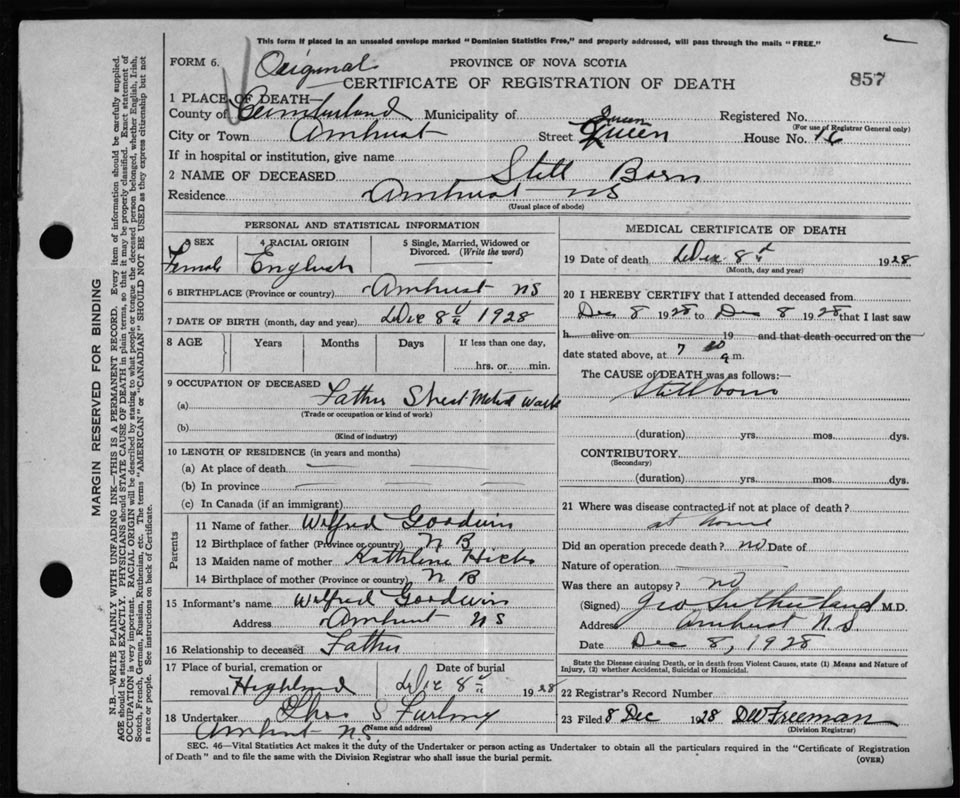 This form if placed in an unsealed envelope marked "Dominion Statistics Free," and properly addressed, will pass through the mails "FREE."
FORM 6. Original PROVINCE OF NOVA SCOTIA
CERTIFICATE OF REGISTRATION OF DEATH 857
1 PLACE OF DEATH
County of Cumberland Municipality of Registered No.
(For use of Registrar General only)
City or Town Amherst Street Queen Queen House No. 16
If in hospital or institution, give name
2 NAME OF DECEASED Still Born
Residence Amherst NS
(Usual place of abode)
PERSONAL AND STATISTICAL INFORMATION
3 SEX 4 RACIAL ORIGIN 5 Single, Married, Widowed or Divorced. (Write the word)
Female English
6 BIRTHPLACE (Province or country) Amherst NS
7 DATE OF BIRTH (month, day and year) Dec 8th 1928
8 AGE Years Months Days If less than one day,
hrs. or min.
9 OCCUPATION OF DECEASED
(a) Father Sheet Metal Works
(Trade or occupation or kind of work)
(b)
(Kind of industry)
10 LENGTH OF RESIDENCE (in years and months)
(a) At place of death
(b) In province
(c) In Canada (if an immigrant)
Parents
11 Name of father Wilfred Goodwin
12 Birthplace of father (Province or country) N B
13 Maiden name of mother Kathlene Hicks
14 Birthplace of mother (Province or country) N B
15 Informant's name Wilfred Goodwin
Address Amherst NS
16 Relationship to deceased Father
17 Place of burial, cremation or removal Highland Date of burial Dec 8th 1928
18 Undertaker Thos S Furlong
(Name and address)
Amherst N.S.
MEDICAL CERTIFICATE OF DEATH
19 Date of death Dec 8th 1928
(Month, day and year)
20 I HEREBY CERTIFY that I attended deceased from
Dec 8 1928 to Dec 8 1928 that I last saw
h alive on 19 and that death occurred on the
date stated above, at 7 a.m.
The CAUSE of DEATH was as follows:
Stillborn
(duration) yrs. mos. dys.
CONTRIBUTORY
(Secondary)
(duration) yrs. mos. dys.
21 Where was disease contracted if not at place of death?
at home
Did an operation precede death? no Date of
Nature of operation
Was there an autopsy? no
(Signed) Geo Sutherland M.D.
Address Amherst N.S
Date Dec 8, 1928
State the Disease causing Death, or in death from Violent Causes, state (1) Means and Nature of
Injury, (2) whether Accidental, Suicidal or Homicidal.
22 Registrar's Record Number
23 Filed 8 Dec 1928 DW Freeman
(Division Registrar)
SEC. 46—Vital Statistics Act makes it the duty of the Undertaker or person acting as Undertaker to obtain all the particulars required in the "Certificate of Registration
of Death" and to file the same with the Division Registrar who shall issue the burial permit. (OVER)
MARGIN RESERVED FOR BINDING
N.B.—WRITE PLAINLY WITH UNFADING INK—THIS IS A PERMANENT RECORD. Every item of information should be carefully supplied.
AGE should be stated EXACTLY. PHYSICIANS should STATE CAUSE OF DEATH in plain terms, so that it may be properly classified. Exact statement of
OCCUPATION is very important. RACIAL ORIGIN will be described by stating to what people or tongue the deceased person belonged, whether English, Irish,
Scotch, French, German, Russian, Ruthenian, etc. The terms "AMERICAN" or "CANADIAN" SHOULD NOT BE USED as they express citizenship but not
a race or people. See instructions on back of Certificate.